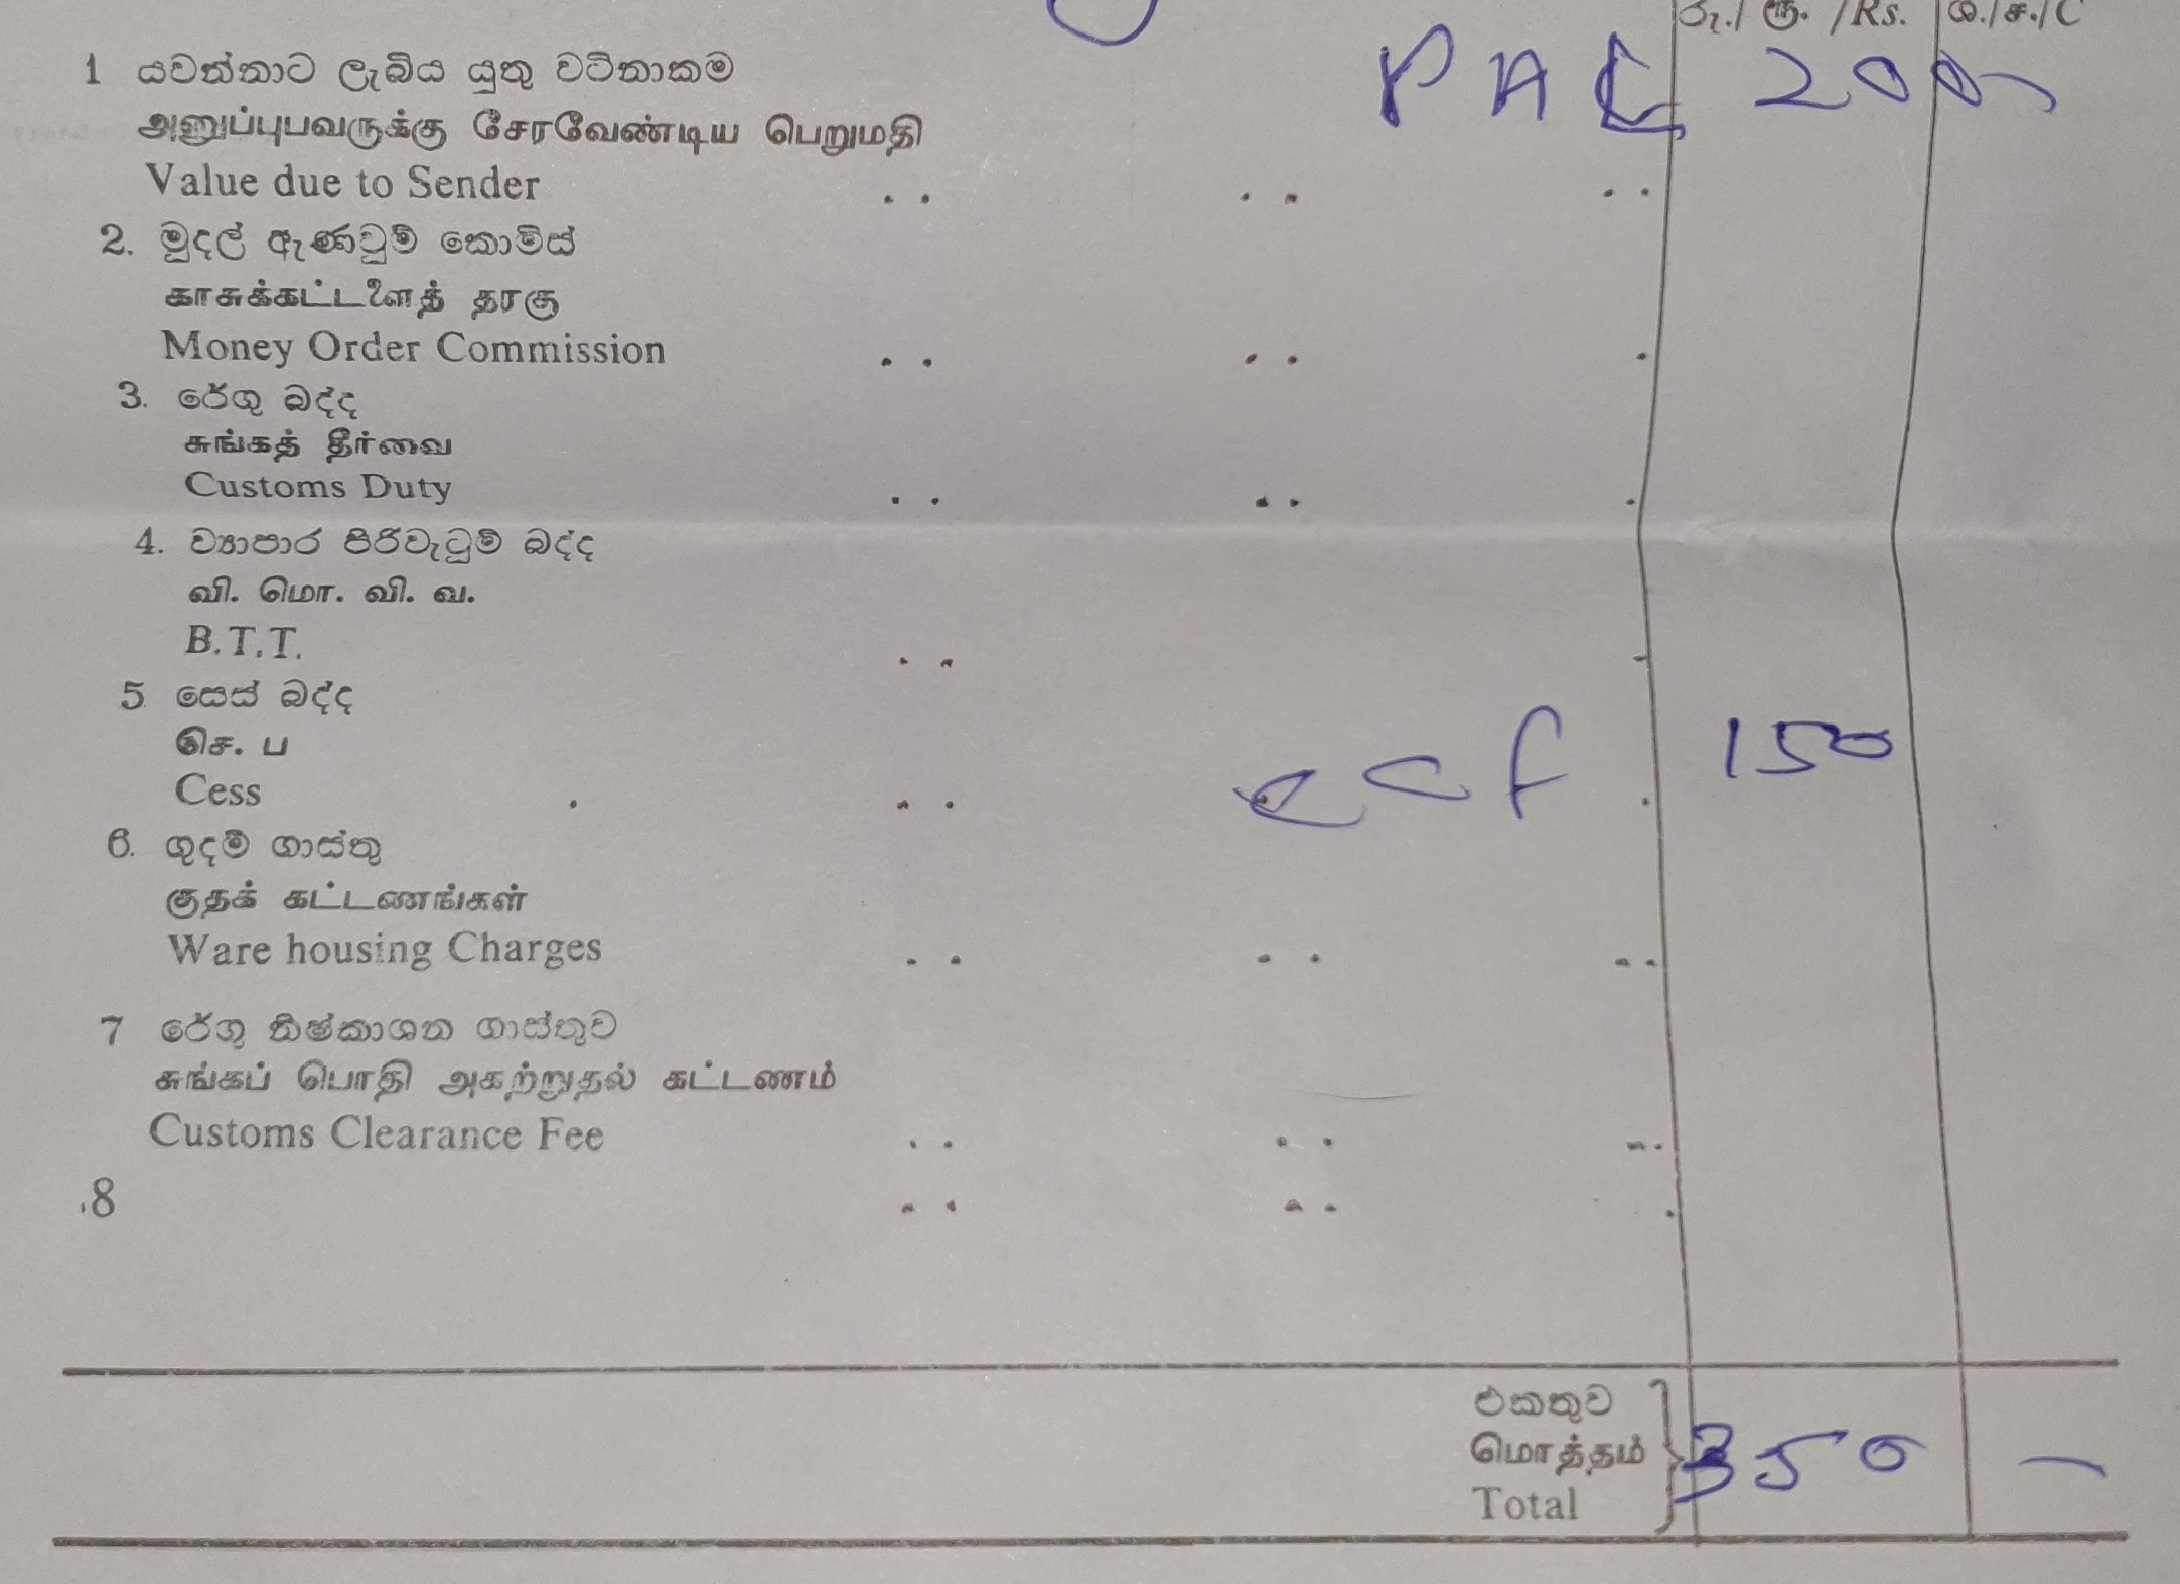 රු./ ரூ. /Rs. ශ./ச./C
1 යවන්නාට ලැබිය යුතු වටිනාකම
PAL 200
அனுப்புபவருக்கு சேரவேண்டிய பெறுமதி
Value due to Sender .. .. ..
2. මුදල් ඇණවුම් කොමිස්
காசுக்கட்டளைத் தரகு
Money Order Commission .. .. .
3. රේගු බද්ද
சுங்கத் தீர்வை
Customs Duty .. .. .
4. ව්‍යාපාර පිරිවැටුම් බද්ද
வி. மொ. வி. வ.
B.T.T. .. .
5 සෙස් බද්ද
செ. ப
ccf 150
Cess . .. .
6. ගුදම් ගාස්තු
குதக் கட்டணங்கள்
Ware housing Charges .. .. ..
7 රේගු නිෂ්කාශන ගාස්තුව
சுங்கப் பொதி அகற்றுதல் கட்டணம்
Customs Clearance Fee .. .. ..
.8 .. .. .
එකතුව
மொத்தம் 350 -
Total